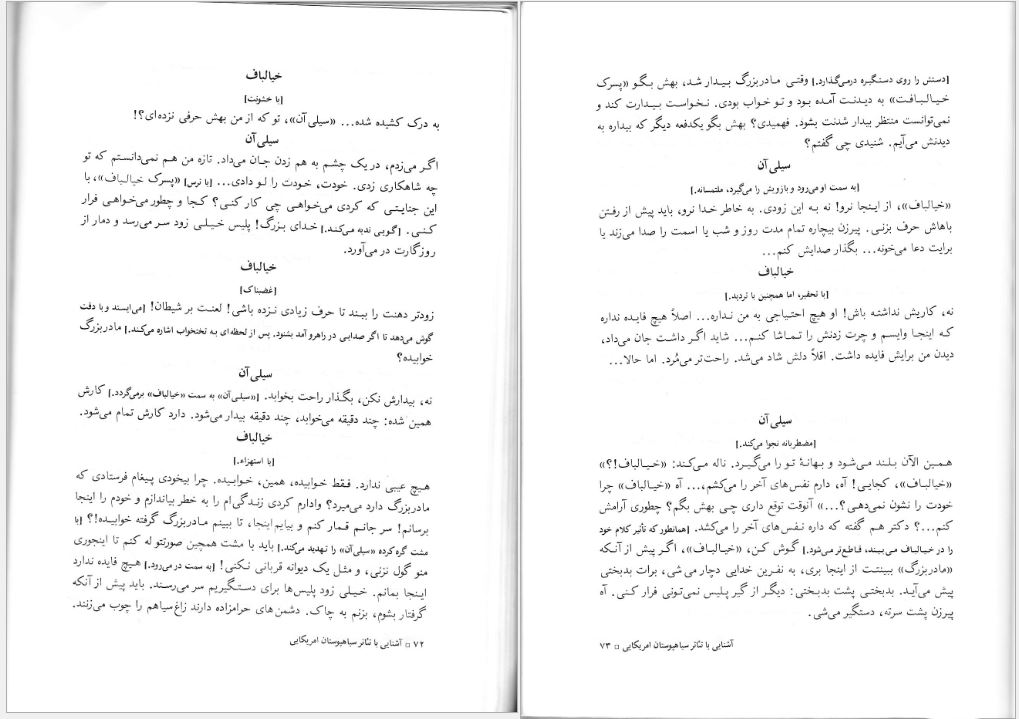 خیالباف
[با خشونت]
به درک کشیده شده... «سیلی‌آن»، تو که از من بهش حرفی نزده‌ای؟!
سیلی‌آن
اگر می‌زدم، در یک چشم به هم زدن جان می‌داد. تازه من هم نمی‌دانستم که تو
چه شاهکاری زدی. خودت، خودت را لو دادی... [با ترس] «پسرک خیالباف»، با
این جنایتی که کردی می‌خواهی چی کار کنی؟ کجا و چطور می‌خواهی فرار
کنی. [گویی ندبه می‌کند.] خدای بزرگ! پلیس خیلی زود سر می‌رسد و دمار از
روزگارت در می‌آورد.
خیالباف
[غضبناک]
زودتر دهنت را ببند تا حرف زیادی نزده باشی! لعنت بر شیطان! [می‌ایستد و با دقت
گوش می‌دهد تا اگر صدایی در راهرو آمد بشنود. پس از لحظه‌ای به تختخواب اشاره می‌کند.] مادربزرگ
خوابیده؟
سیلی‌آن
نه، بیدارش نکن، بگذار راحت بخوابد. [«سیلی‌آن» به سمت «خیالباف» برمی‌گردد.] کارش
همین شده: چند دقیقه می‌خوابد، چند دقیقه بیدار می‌شود. دارد کارش تمام می‌شود.
خیالباف
[با استهزاء.]
هیچ عیبی ندارد. فقط خوابیده، همین، خوابیده. چرا بیخودی پیغام فرستادی که
مادربزرگ دارد می‌میرد؟ وادارم کردی زندگی‌ام را به خطر بیاندازم و خودم را اینجا
برسانم! سر جانم قمار کنم و بیایم اینجا، تا ببینم مادربزرگ گرفته خوابیده!؟ [با
مشت گره کرده «سیلی‌آن» را تهدید می‌کند.] باید با مشت همچین صورتتو له کنم تا اینجوری
منو گول نزنی، و مثل یک دیوانه قربانی نکنی! [به سمت در می‌رود.] هیچ فایده ندارد
اینجا بمانم. خیلی زود پلیس‌ها برای دستگیریم سر می‌رسند. باید پیش از آنکه
گرفتار بشوم، بزنم به چاک. دشمن‌های حرامزاده دارند زاغ‌سیاهم را چوب می‌زنند.
۷۲ □ آشنایی با تئاتر سیاهپوستان امریکایی
[دستش را روی دستگیره در می‌گذارد.] وقتی مادربزرگ بیدار شد، بهش بگو «پسرک
خیالبافت» به دیدنت آمده بود و تو خواب بودی. نخواست بیدارت کند و
نمی‌توانست منتظر بیدار شدنت بشود. فهمیدی؟ بهش بگو یکدفعه دیگر که بیداره به
دیدنش می‌آیم. شنیدی چی گفتم؟
سیلی‌آن
[به سمت او می‌رود و بازویش را می‌گیرد، ملتمسانه.]
«خیالباف»، از اینجا نرو! نه به این زودی. به خاطر خدا نرو، باید پیش از رفتن
باهاش حرف بزنی. پیرزن بیچاره تمام مدت روز و شب یا اسمت را صدا می‌زند یا
برایت دعا می‌خونه... بگذار صدایش کنم...
خیالباف
[با تحقیر، اما همچنین با تردید.]
نه، کاریش نداشته باش! او هیچ احتیاجی به من نداره... اصلاً هیچ فایده نداره
که اینجا وایسم و چرت زدنش را تماشا کنم... شاید اگر داشت جان می‌داد،
دیدن من برایش فایده داشت. اقلاً دلش شاد می‌شد. راحت‌تر می‌مُرد. اما حالا...
سیلی‌آن
[مضطربانه نجوا می‌کند.]
همین الآن بلند می‌شود و بهانهٔ تو را می‌گیرد. ناله می‌کند: «خیالباف!؟»
«خیالباف»، کجایی! آه، دارم نفس‌های آخر را می‌کشم،... آه «خیالباف» چرا
خودت را نشون نمی‌دهی؟...» آنوقت توقع داری چی بهش بگم؟ چطوری آرامش
کنم...؟ دکتر هم گفته که داره نفس‌های آخر را می‌کشد. [همانطور که تأثیر کلام خود
را در خیالباف می‌بیند، قاطع‌تر می‌شود.] گوش کن، «خیالباف»، اگر پیش از آنکه
«مادربزرگ» ببینتت از اینجا بری، به نفرین خدایی دچار می‌شی، برات بدبختی
پیش می‌آید. بدبختی پشت بدبختی: دیگر از گیر پلیس نمی‌تونی فرار کنی. آه
پیرزن پشت سرته، دستگیر می‌شی.
آشنایی با تئاتر سیاهپوستان امریکایی □ ۷۳